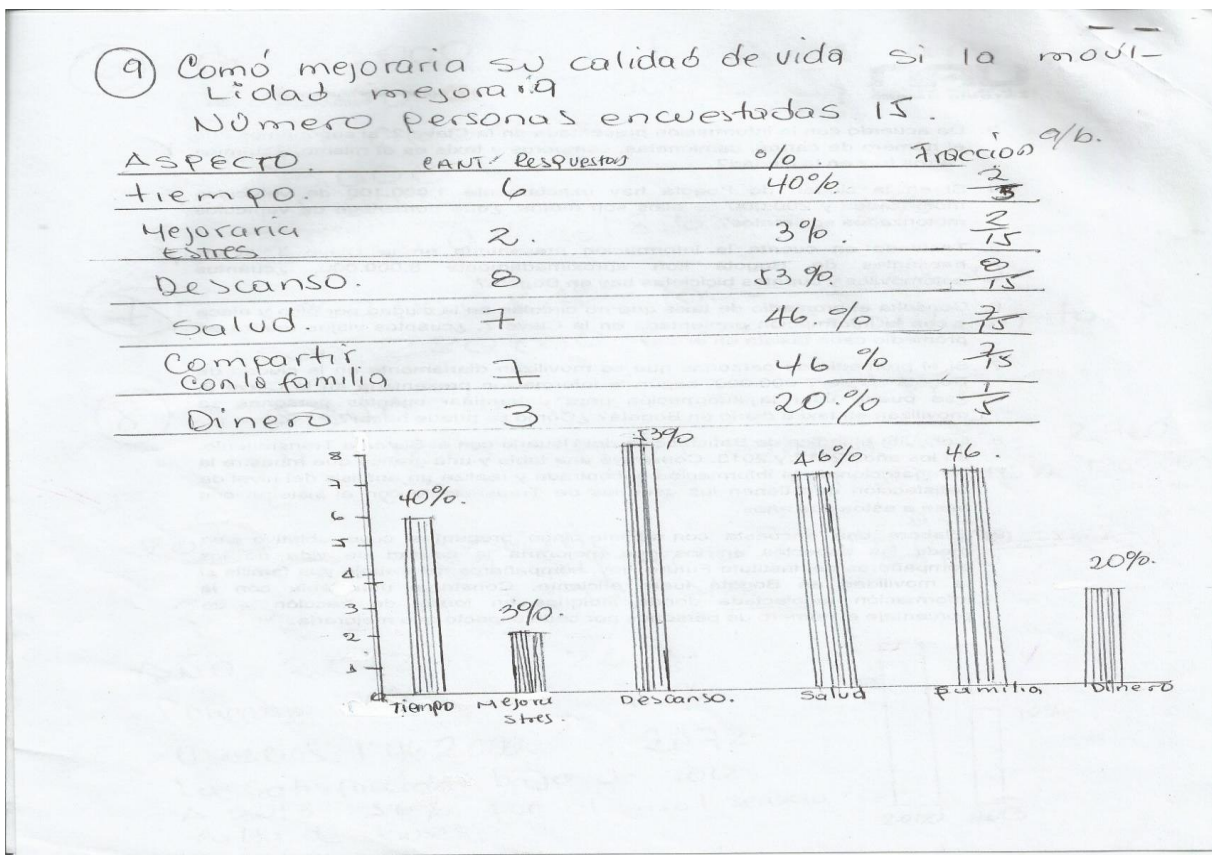 9 Comó mejoraria su calidad de vida si la movil-
lidad mejoraria
Número personas encuestadas 15.
ASPECTO. CANT. Respuestas % Fraccion a/b.
tiempo. 6 40%. 2/5
Mejoraria estres 2. 3%. 2/15
Descanso. 8 53%. 8/15
Salud. 7 46.% 7/15
Compartir con la familia 7 46% 7/15
Dinero 3 20.% 1/5
40%. 3%. 53% 46% 46. 20%.
8
6
5
4
3
2
1
0
Tiempo Mejora stres. Descanso. Salud familia Dinero